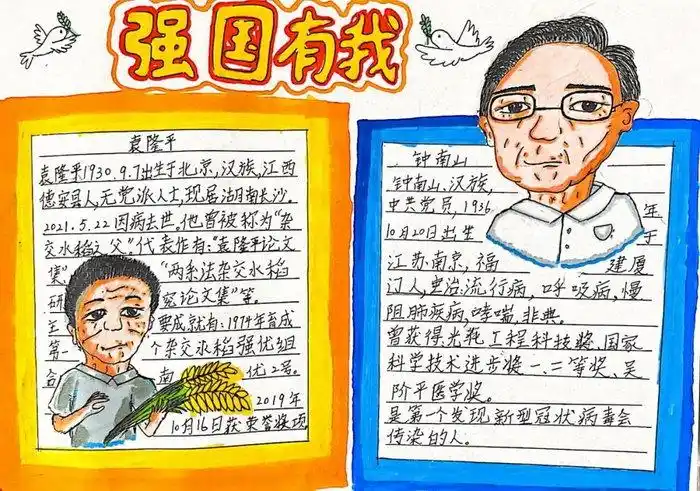 强国有我
袁隆平
袁隆平1930.9.7出生于北京,汉族,江西
德安县人,无党派人士,现居湖南长沙.
2021.5.22因病去世.他曾被称为“杂
交水稻之父”代表作有:“袁隆平论文
集”“两系法杂交水稻
研究论文集”等.
主要成就有:1974年育成
第一个杂交水稻强优组
合南优2号。
2019年
10月16日获荣誉奖项
钟南山
钟南山,汉族,
中共党员,1936年
10月20日出生于
江苏南京,福建厦
门人,主治流行病,呼吸病,慢
阻肺疾病,哮喘,非典。
曾获得光华工程科技奖、国家
科学技术进步奖一、二等奖、吴
阶平医学奖。
是第一个发现新型冠状病毒会
传染的人。